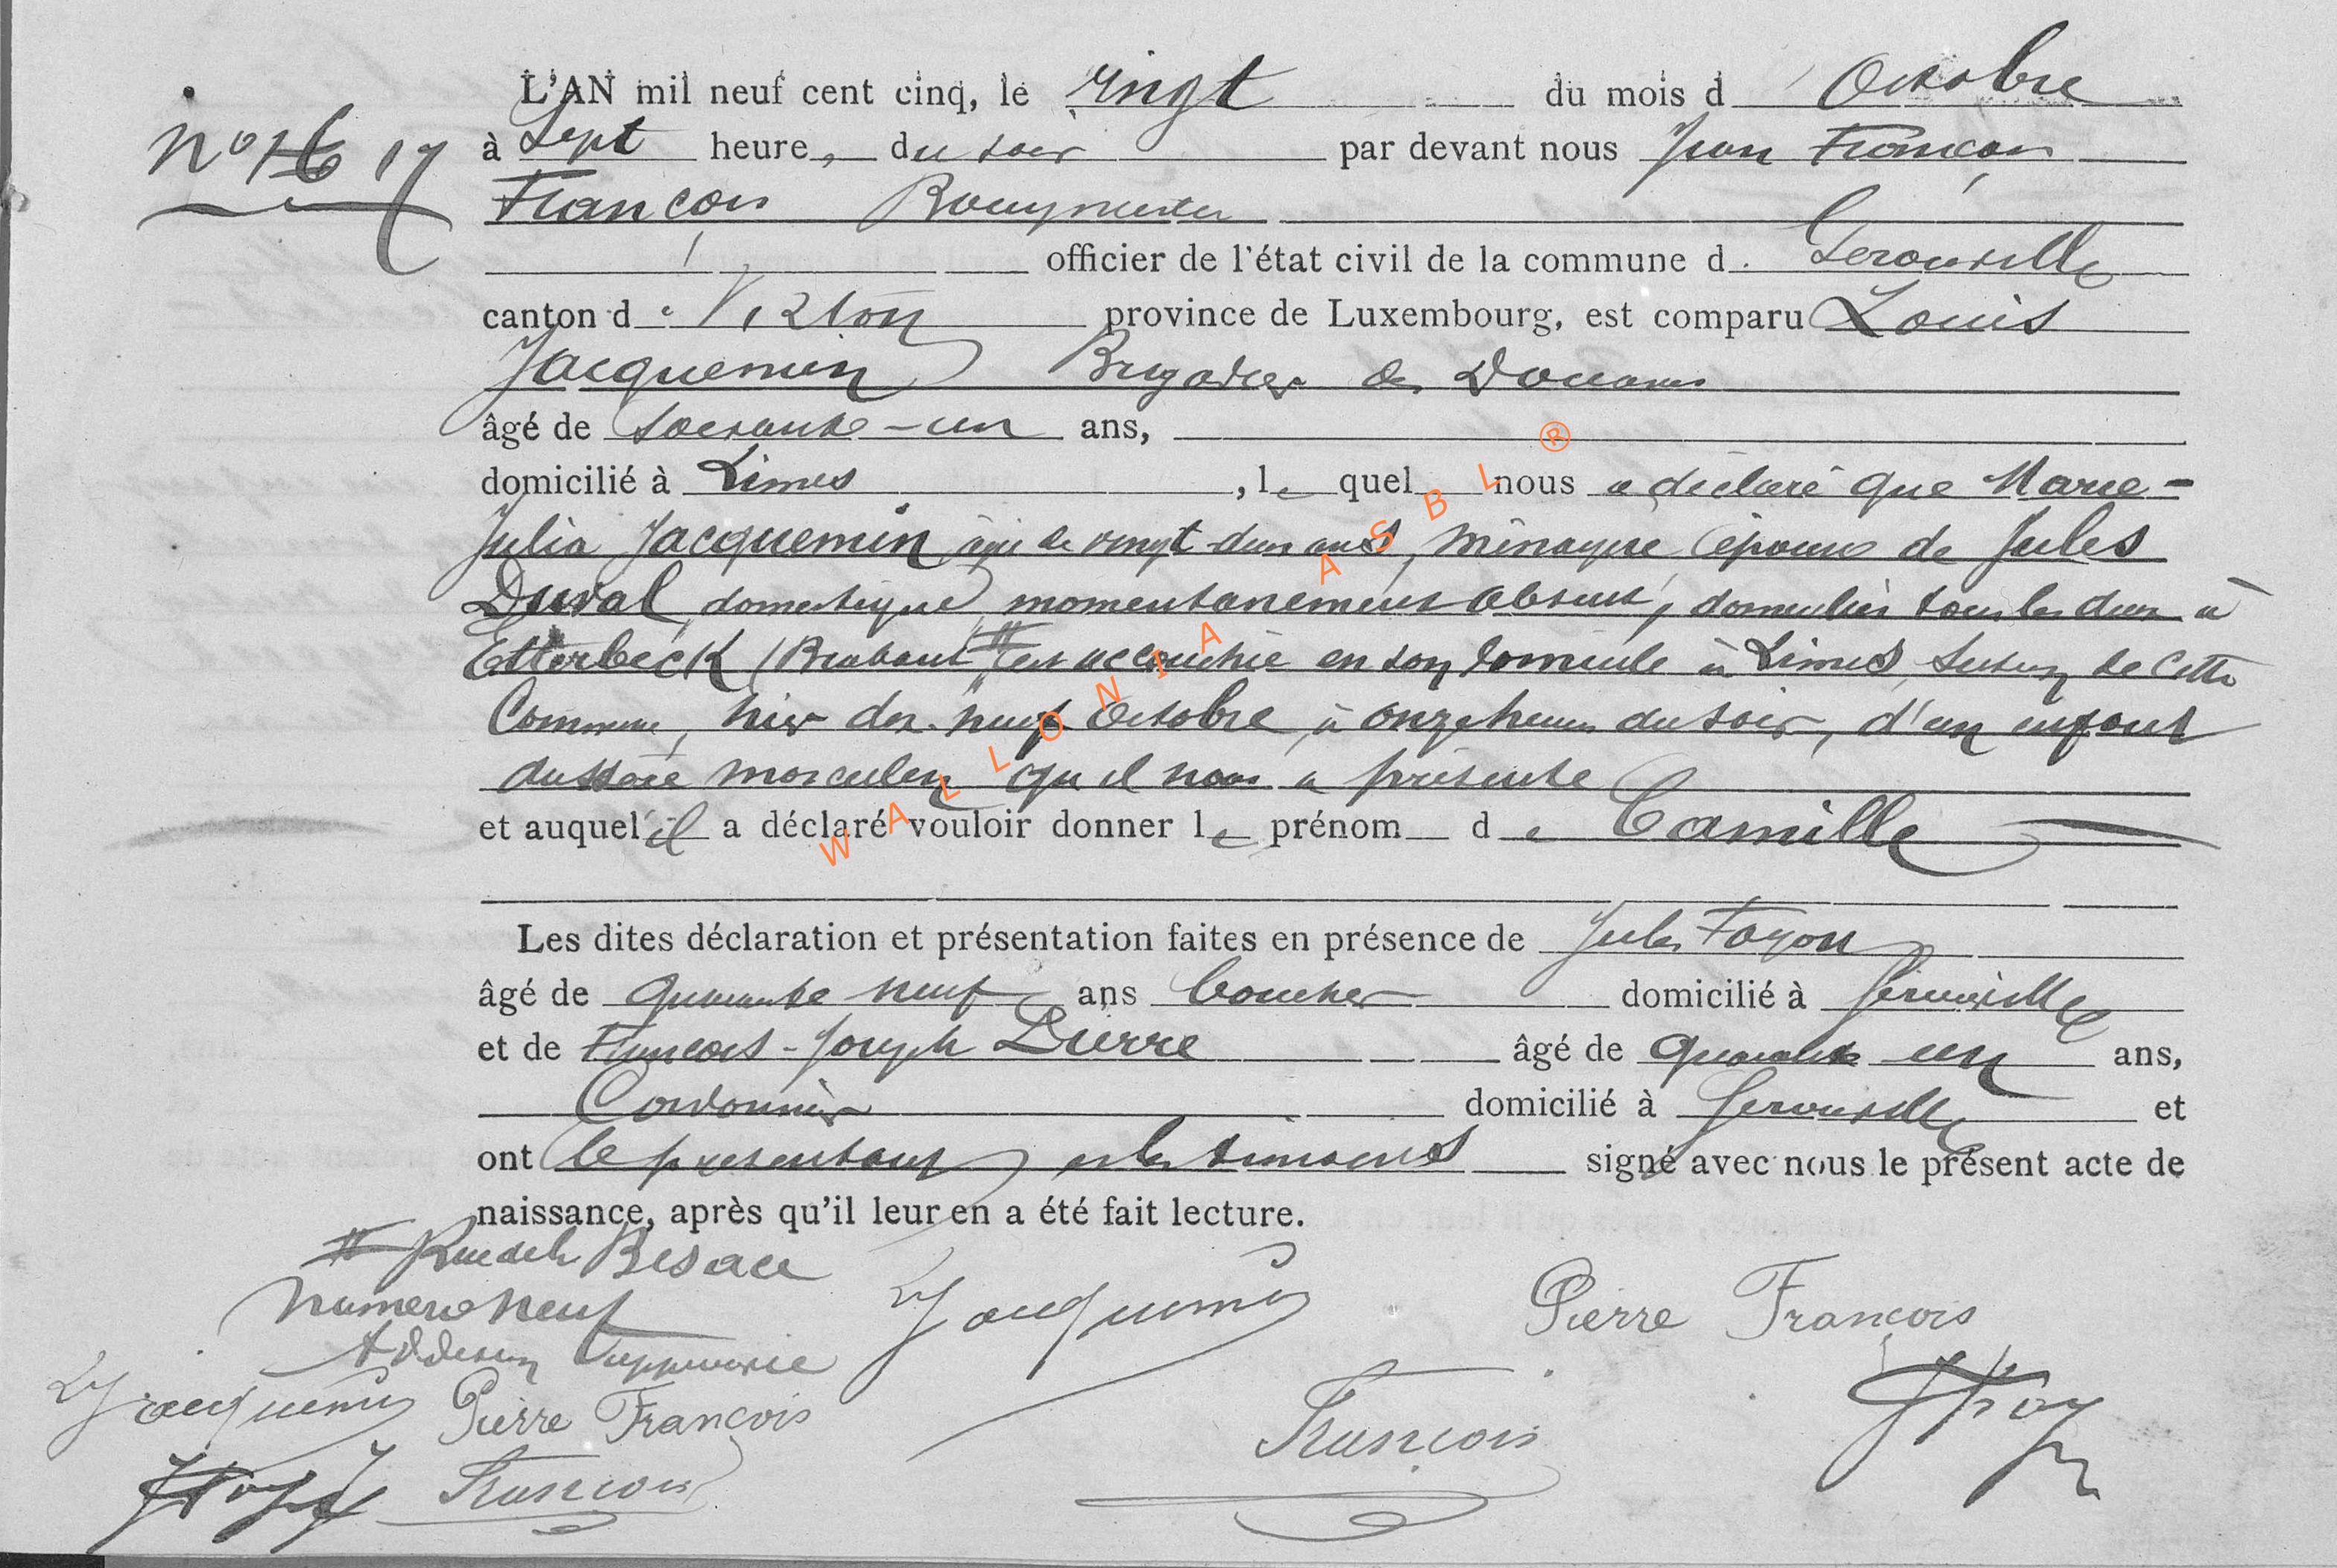 L'AN mil neuf cent cinq, le vingt du mois d Octobre
No 16 17
à Sept heure, du soir par devant nous Jean François
François Bourgmestre
officier de l'état civil de la commune d. Gerouville
canton de Virton province de Luxembourg, est comparu Louis
Jacquemin Brigadier des Douanes
âgé de soixante-un ans,
domicilié à Limes, le quel nous a déclaré que Marie-
Julia Jacquemin âgée de vingt-deux ans, ménagère épouse de Jules
Duval, domestique momentanément absent, domiciliés tous les deux à
Etterbeck (Brabant # est accouchée en son domicile à Limes, section de cette
Commune, hier dix-neuf Octobre, à onze heures du soir, d'un enfant
du sexe masculin qu'il nous a présenté
et auquel il a déclaré vouloir donner le prénom de Camille
Les dites déclaration et présentation faites en présence de Jules
âgé de quarante neuf ans boucher domicilié à Gerouville
et de François-Joseph Pierre âgé de quarante un ans,
Cordonnier domicilié à Gerouville et
ont le présentant et les témoins signé avec nous le présent acte de
naissance, après qu'il leur en a été fait lecture.
# Rue de la Besace
numero neuf
Addition approuvée
LJacquemin Pierre François
LJacquemin Pierre François
François
François
WALLONIA ASBL ®